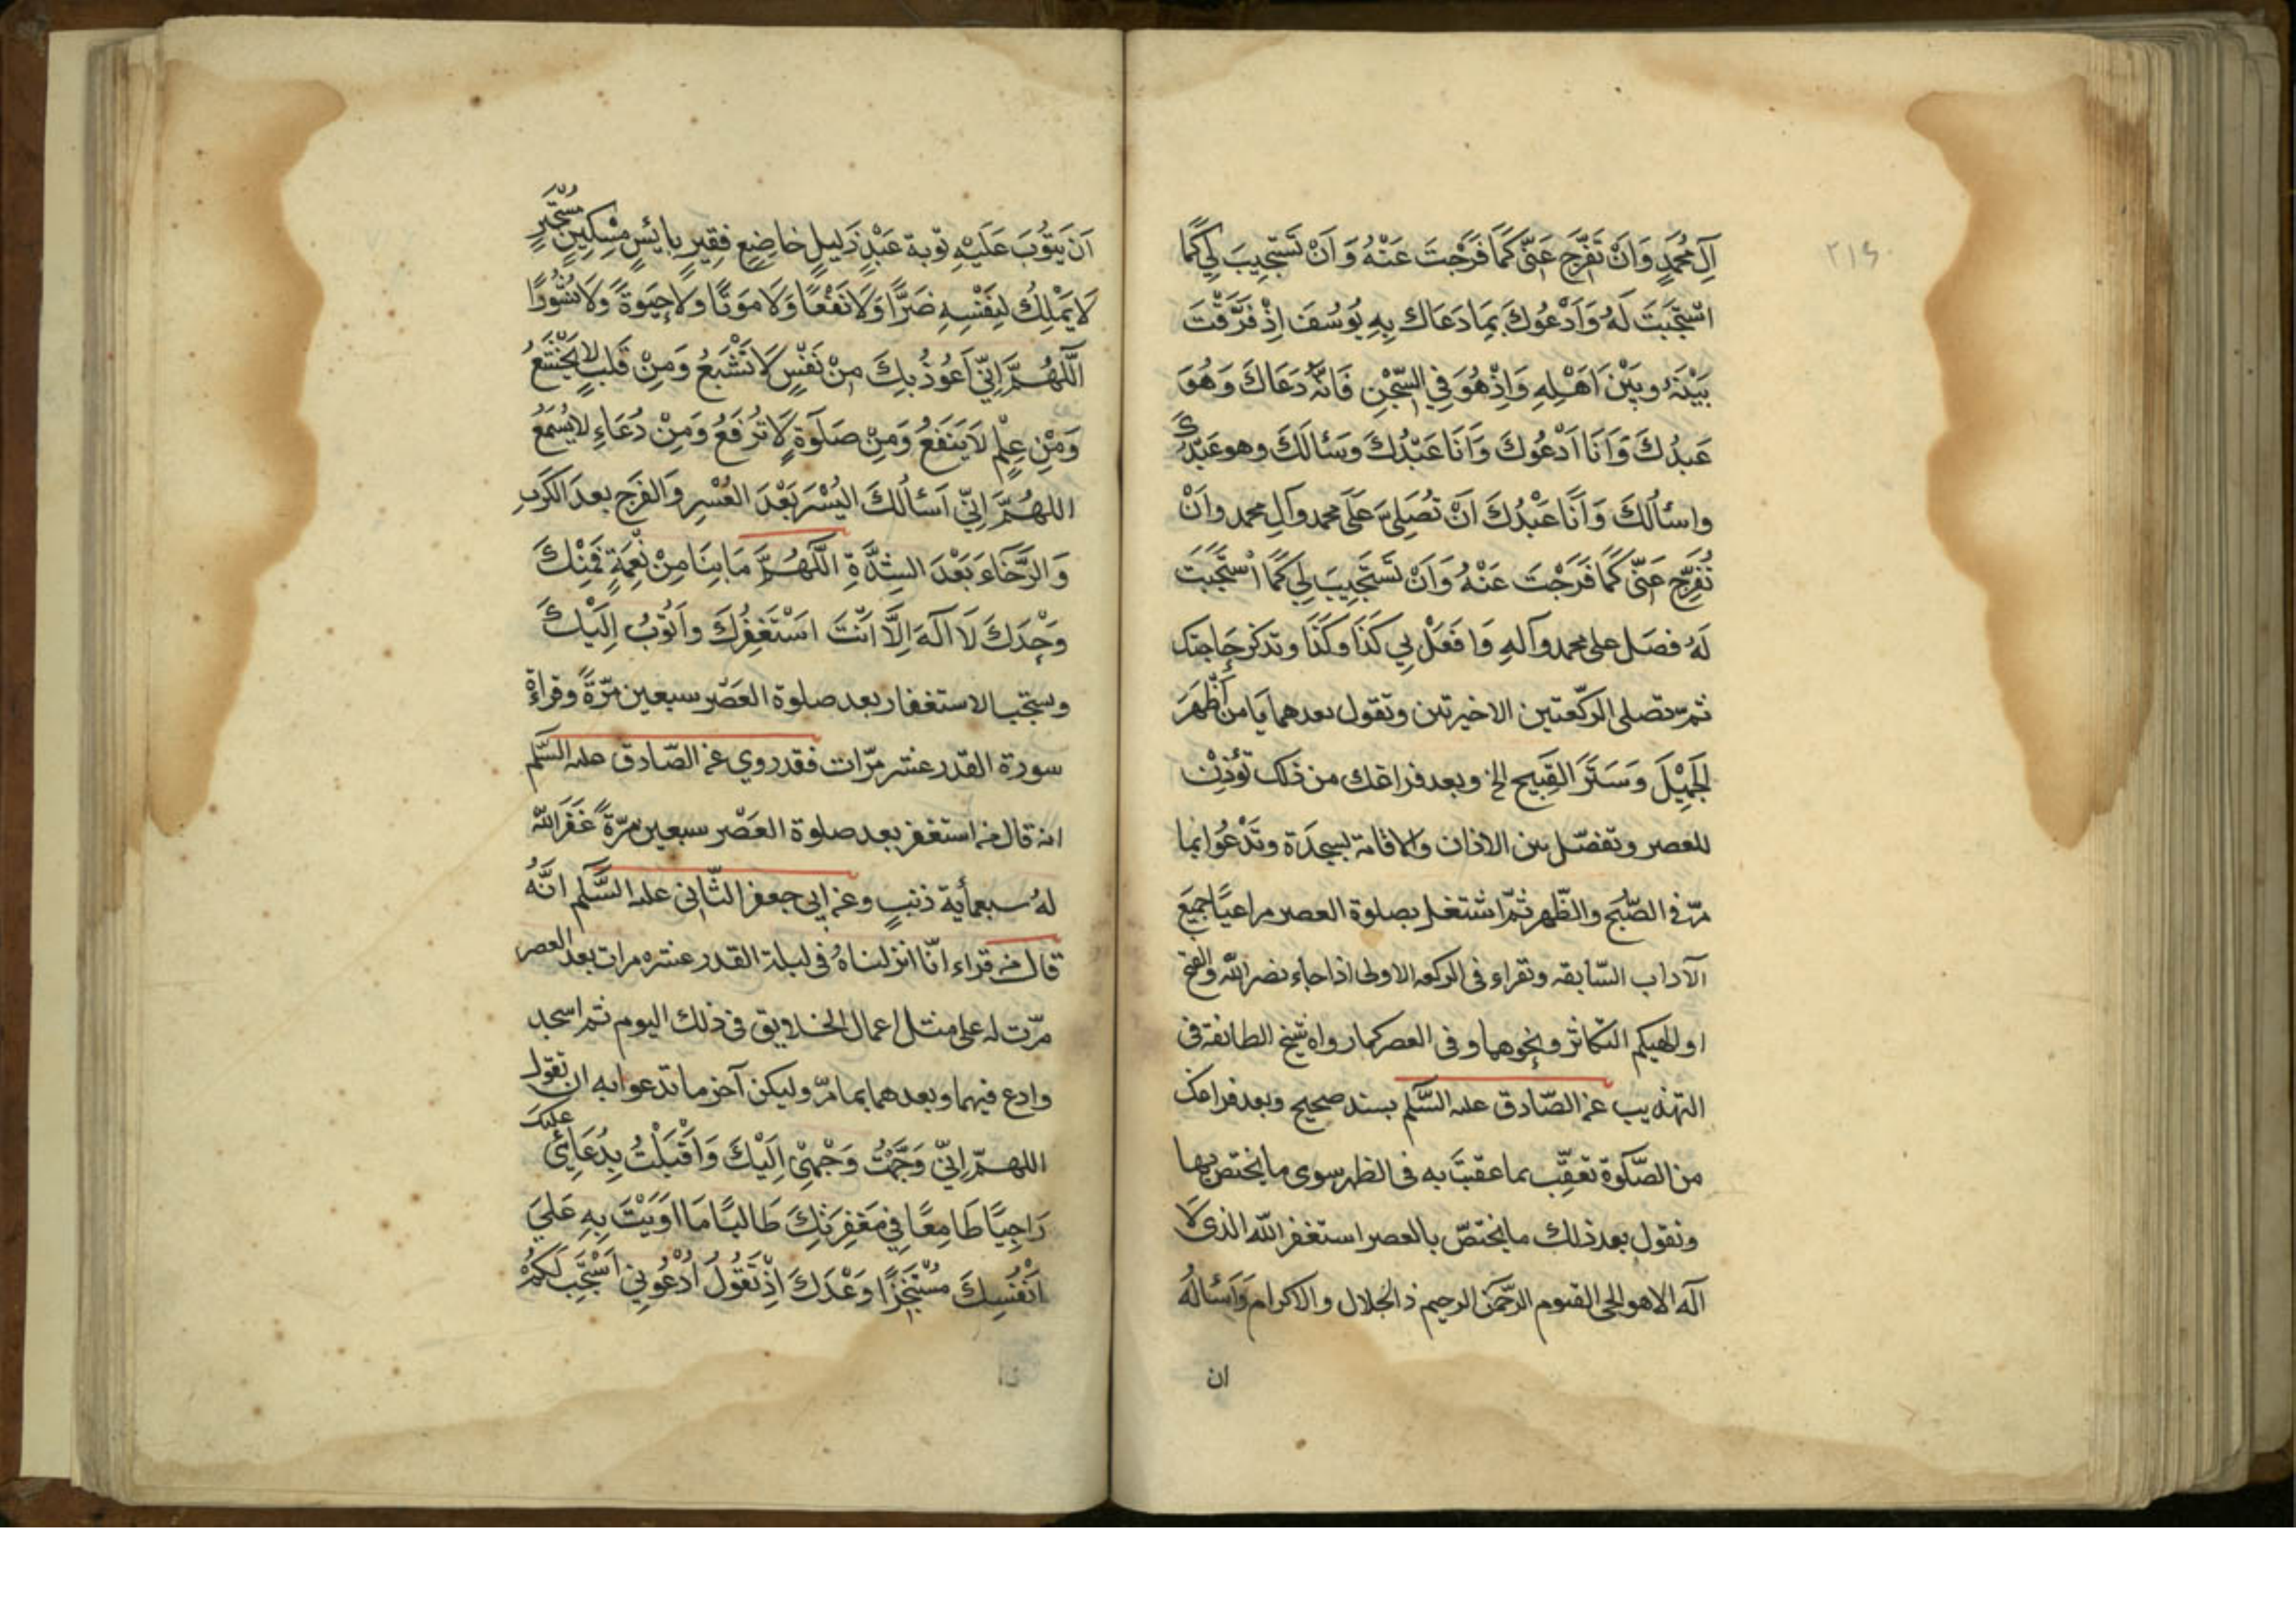 ٢١٤
آلِ مُحَمَّدٍ وَاَنْ تُفَرِّجَ عَنّى كَمَا فَرَّجْتَ عَنْهُ وَ اَنْ تَسْتَجِيبَ لِي كَمَا
اسْتَجَبْتَ لَهُ وَاَدْعُوكَ بِمَا دَعَاك بِهِ يُوسُفَ اِذْ فَرَّقْتَ
بَيْنَهُ وبَيْنَ اَهْلِهِ وَاِذْ هُوَ فِي السِّجْنِ فَانَّهُ دَعَاكَ وَهُوَ
عَبدُكَ وَ اَنَا اَدْعُوكَ وَ اَنَا عَبْدُكَ وسَئَالَكَ وهو عَبْدُكَ
واسئالُكَ وَ اَنَا عَبْدُكَ اَنْ تُصَلِىَّ عَلَى محمد وآلِ محمد واَنْ
تُفَرِّجَ عَنّى كَمَا فَرَجْتَ عَنْهُ وَاَنْ تَسْتَجِيبَ لِي كَمَا اسْتَجَبْتَ
لَهُ فصَل على محمد وآلهِ وَا فَعَلْ بِي كَذَا وكَذَا وتذكر حَاجتك
ثمّ تصلى الركّعتين الاخيرتين وتقول بعدهما يَا من اَظْهَرَ
الجَمِيْلَ وَسَتَرَ القِبَيح الخ وبعد فراغك من ذلك تُؤذِنْ
للعصر وتفصّل بين الاذان والاقامة بسجدَة وتَدْعُوا بما
مرّ فى الصّبح والظّهر ثمّ اشتغل بصلوة العصر مراعيًا جميَع
الآداب السّابقه وتقراء فى الركعه الاولى اذا جاء نصر اللّه والفتح
او الهيكم التكاثر ونحوهما وفى العصر كما رواه شيخ الطائفة فى
التهذيب عن الصّادق عليه السَّلم بسند صحيح وبعد فراغك
من الصَّلوة تعقِّب بما عقبتَ به فى الظهر سوى ما يختص بها
وتقول بعد ذلك ما يختصّ بالعصر استغفر اللّه الذى لا
آله الا هو الحى القيوم الرَّحمَن الرحيم ذ الجلال والاكرام وَاَسْئالُهُ
ان
اَنَ يَتوُبَ عَلَيْهِ تَوبة عَبْدٍ ذَلِيلٍ خاضِعٍ فقِيرٍ بايئسٍ مِسْكينٍ مُسْتَجيرٍ
لَا يَمْلِكُ لِنَفْسِهِ ضَرًّا وَلَا نَفْعًا وَلَا مَوتًا ولَا حَيَوةً ولَا نُشُورًا
اللّهُمَّ اِنِّي اَعُوذُ بِكَ مِنْ نَفْسٍ لَا تَشْبَعُ وَمِنْ قَلبٍ لا يَخْشَعُ
وَمِنْ عِلْمٍ لَا يَنفَعُ وَمِنْ صَلَوةٍ لَا تُرفَعُ وَمِنْ دُعَاءٍ لا يُسْمَعُ
اللهُمَّ اِنّي اَسئالُكَ اليُسْرَ بَعْدَ العُسْرِ والفَرَج بعدَ الكَربِ
وَ الرَّخَاءَ بَعْدَ الشِدَّةِ اللّهُمَّ مَا بِنَا مِنْ نِعْمَةٍ فَمِنْكَ
وَحْدَكَ لَا آلَهَ اِلَّا اَنْتَ اسَتْغفِرُكَ واَتُوبُ اِلَيْكَ
ويستحبّ الاستغفار بعد صلوة العَصْر سبعين مَرّةً وقراءة
سورة القدر عشر مرّات فقد روي عن الصّادق عليه السَّلم
انه قال من استغفر بعد صلوة العَصْر سبعين مرّةً غَفَرَ اللّه
لهُ سبعمأية ذنبٍ وعن ابى جعفر الثّانى عليه السَّلم انّهُ
قال من قراء انّا انزلناهُ فى ليلة القدر عشره مرات بعد العصر
مرّت له على مثل اعمال الخلايق فى ذلك اليوم ثم اسجد
وادع فيهما وبعدهما بما مرّ وليكن آخر ما تدعوا به ان تقول
اللهمّ اِنّى وَجَّهْتُ وَجْهِىْ اِلَيْكَ وَاَقْبَلْتُ بِدُعَايِىْ عليكَ
رَاجِيًا طَامِعًا فِي مَغفِرَتِكَ طَالبًا مَا اوَيْتَ بِهِ عَلىَ
اَنْفُسِكَ مُسْتَنْجِزًا وَعْدَكَ اِذْ تَقُولُ اُدْعُوني اَسْتَجِبْ لَكُمْ